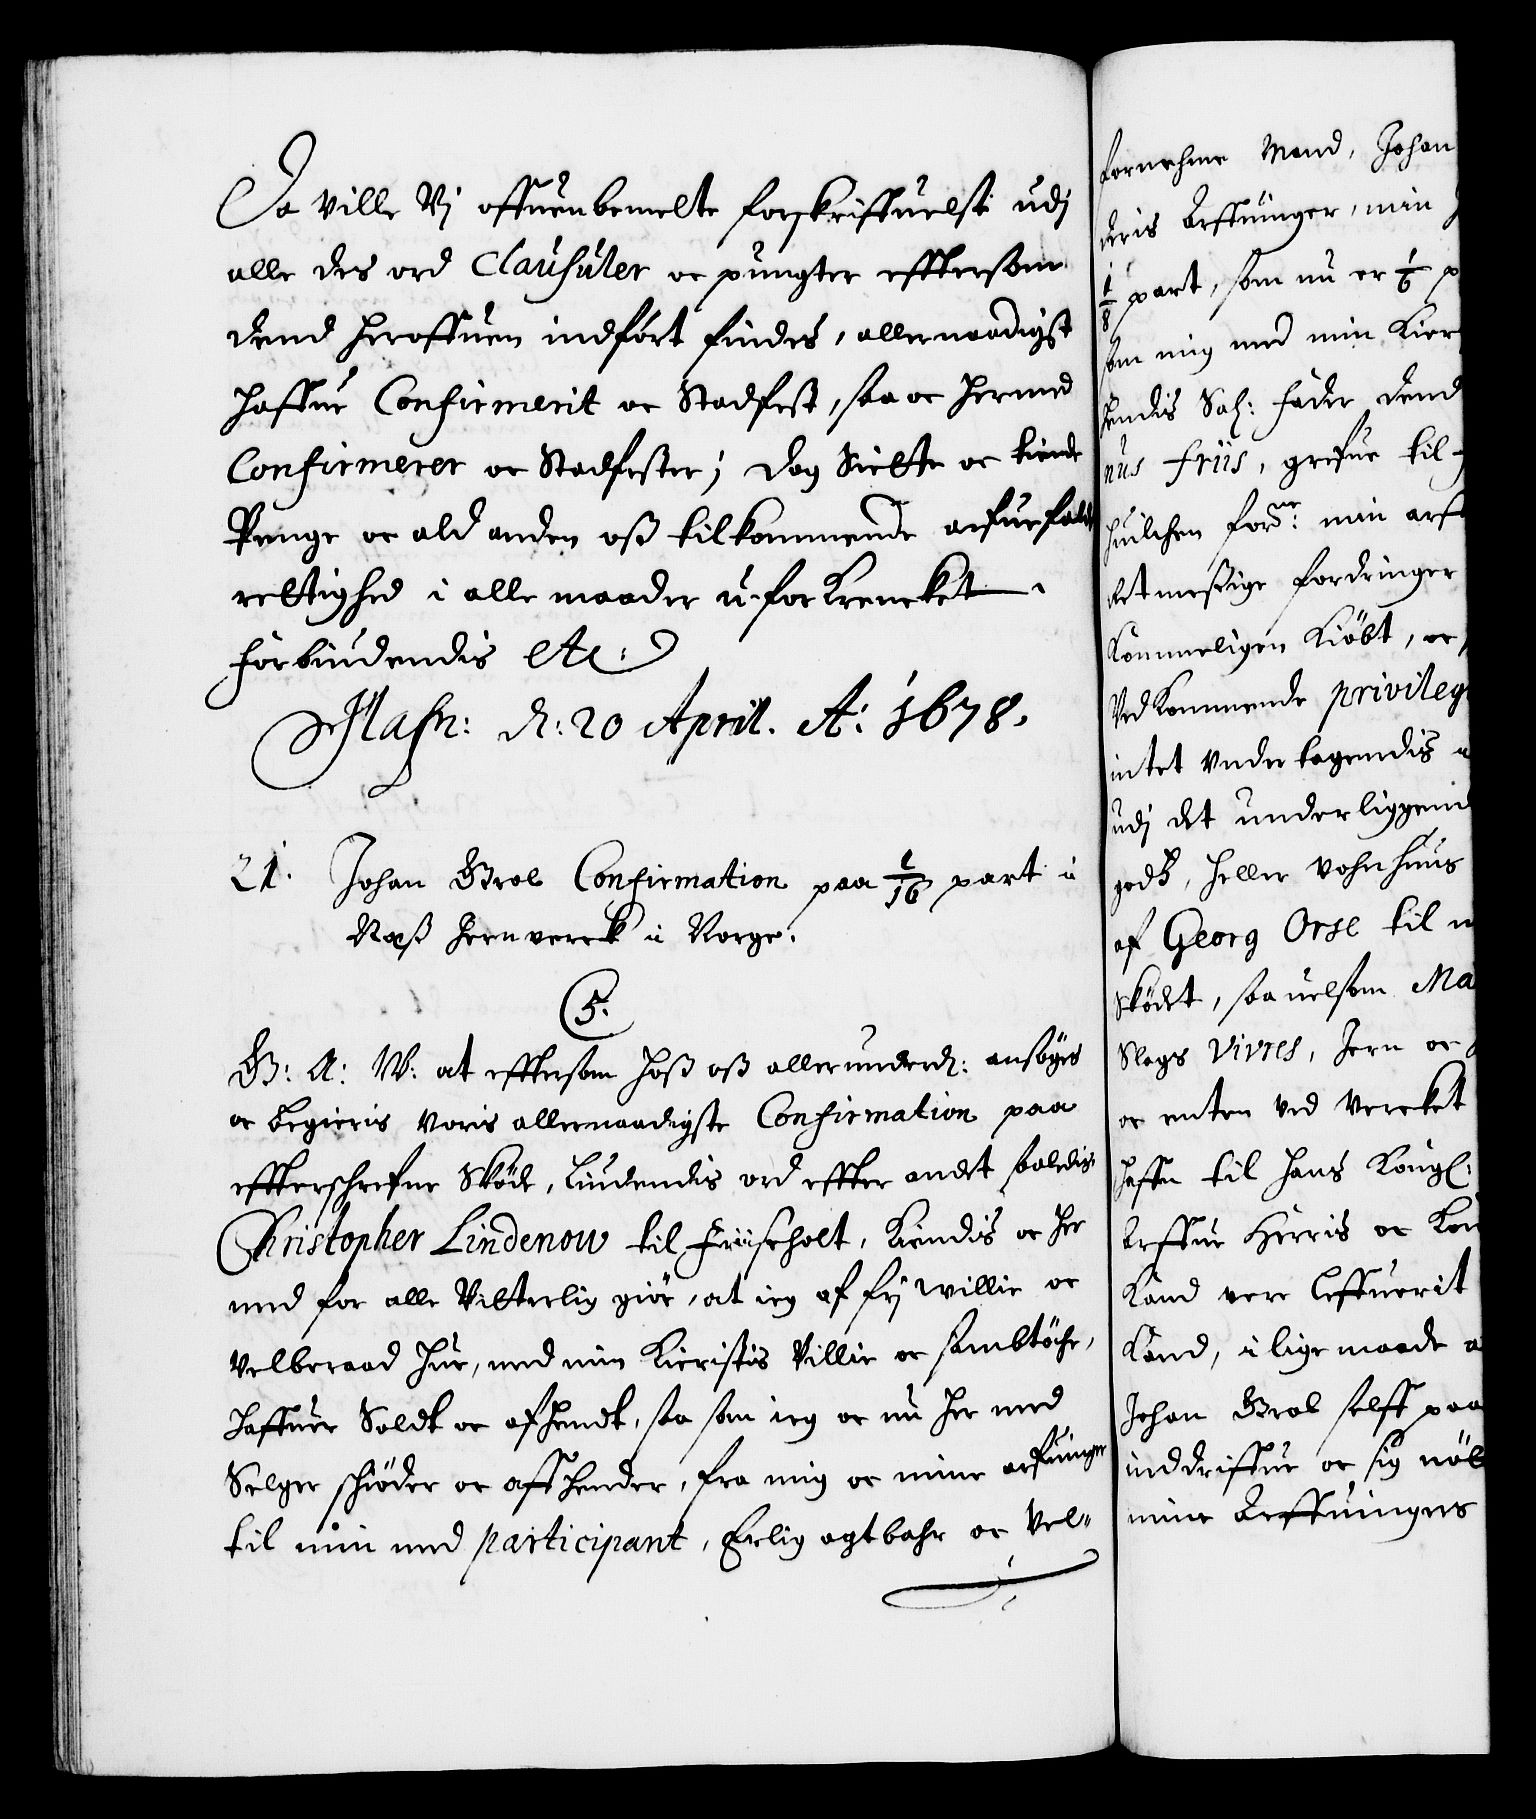 Da ville Vi offuenbemelte forskriffuelse udj
alle des ord Clausuler oc pungter efftersom
dend heroffuen indfört findes, allernaadigst
haffue Confirmerit oc Stadfest, saa oc hermed
Confirmerer oc Stadfester; dog Siette oc tiende
Penge oc ald anden oß tilkommende arfuefald
rettighed i alle maader u-forkrencket
forbiudendis etc:
Hafn: d: 20 April. A: 1678.
21. Johan Brol Confirmation paa 1/16 part i
Næß Jernverck i Norge.
C 5.
G: A: W: at efftersom hoß oß allerunderd: ansöges
oc begieris voris allernaadigste Confirmation paa
effterschrefne Sköde, Liudendis ord effter andet saaledis
Christopher Lindenow til Friiseholt, Kiendis oc her
med for alle Vitterlig giör, at ieg af frj willie oc
velberaad hue, med min Kieristis Villie oc sambtöche,
haffuer Soldt oc afhendt, saa som ieg oc nu her med
Selger schiöder oc affhender, fra mig oc mine arfuinger
til min med participant, Erlig agtbahr oc Vel-
fornehme Mand, Johan
deris Arffuinger, min
1/8 part, som nu er 1/6 p
som mig med min Kier
hendis Sal: fader dend
nus Friis, grefue til
huilchen for.ne: min arf
retmeßige fordringer
Kommeligen Kiöbt, oc
Vedkommende privileg
intet undertagendis
udj det underliggend
godß, heller vohnhuus
af Georg Orse til
Sködet, saauelsom Ma
Slags Vivres, Jern oc
oc enten ved Vercket
haffn til hans Kongl:
Arffue Herris oc Kon
Kand vere Leffuerit
Kand, i lige maade
Johan Brol selff paa
inddriffue oc sig
mine Arffuingers